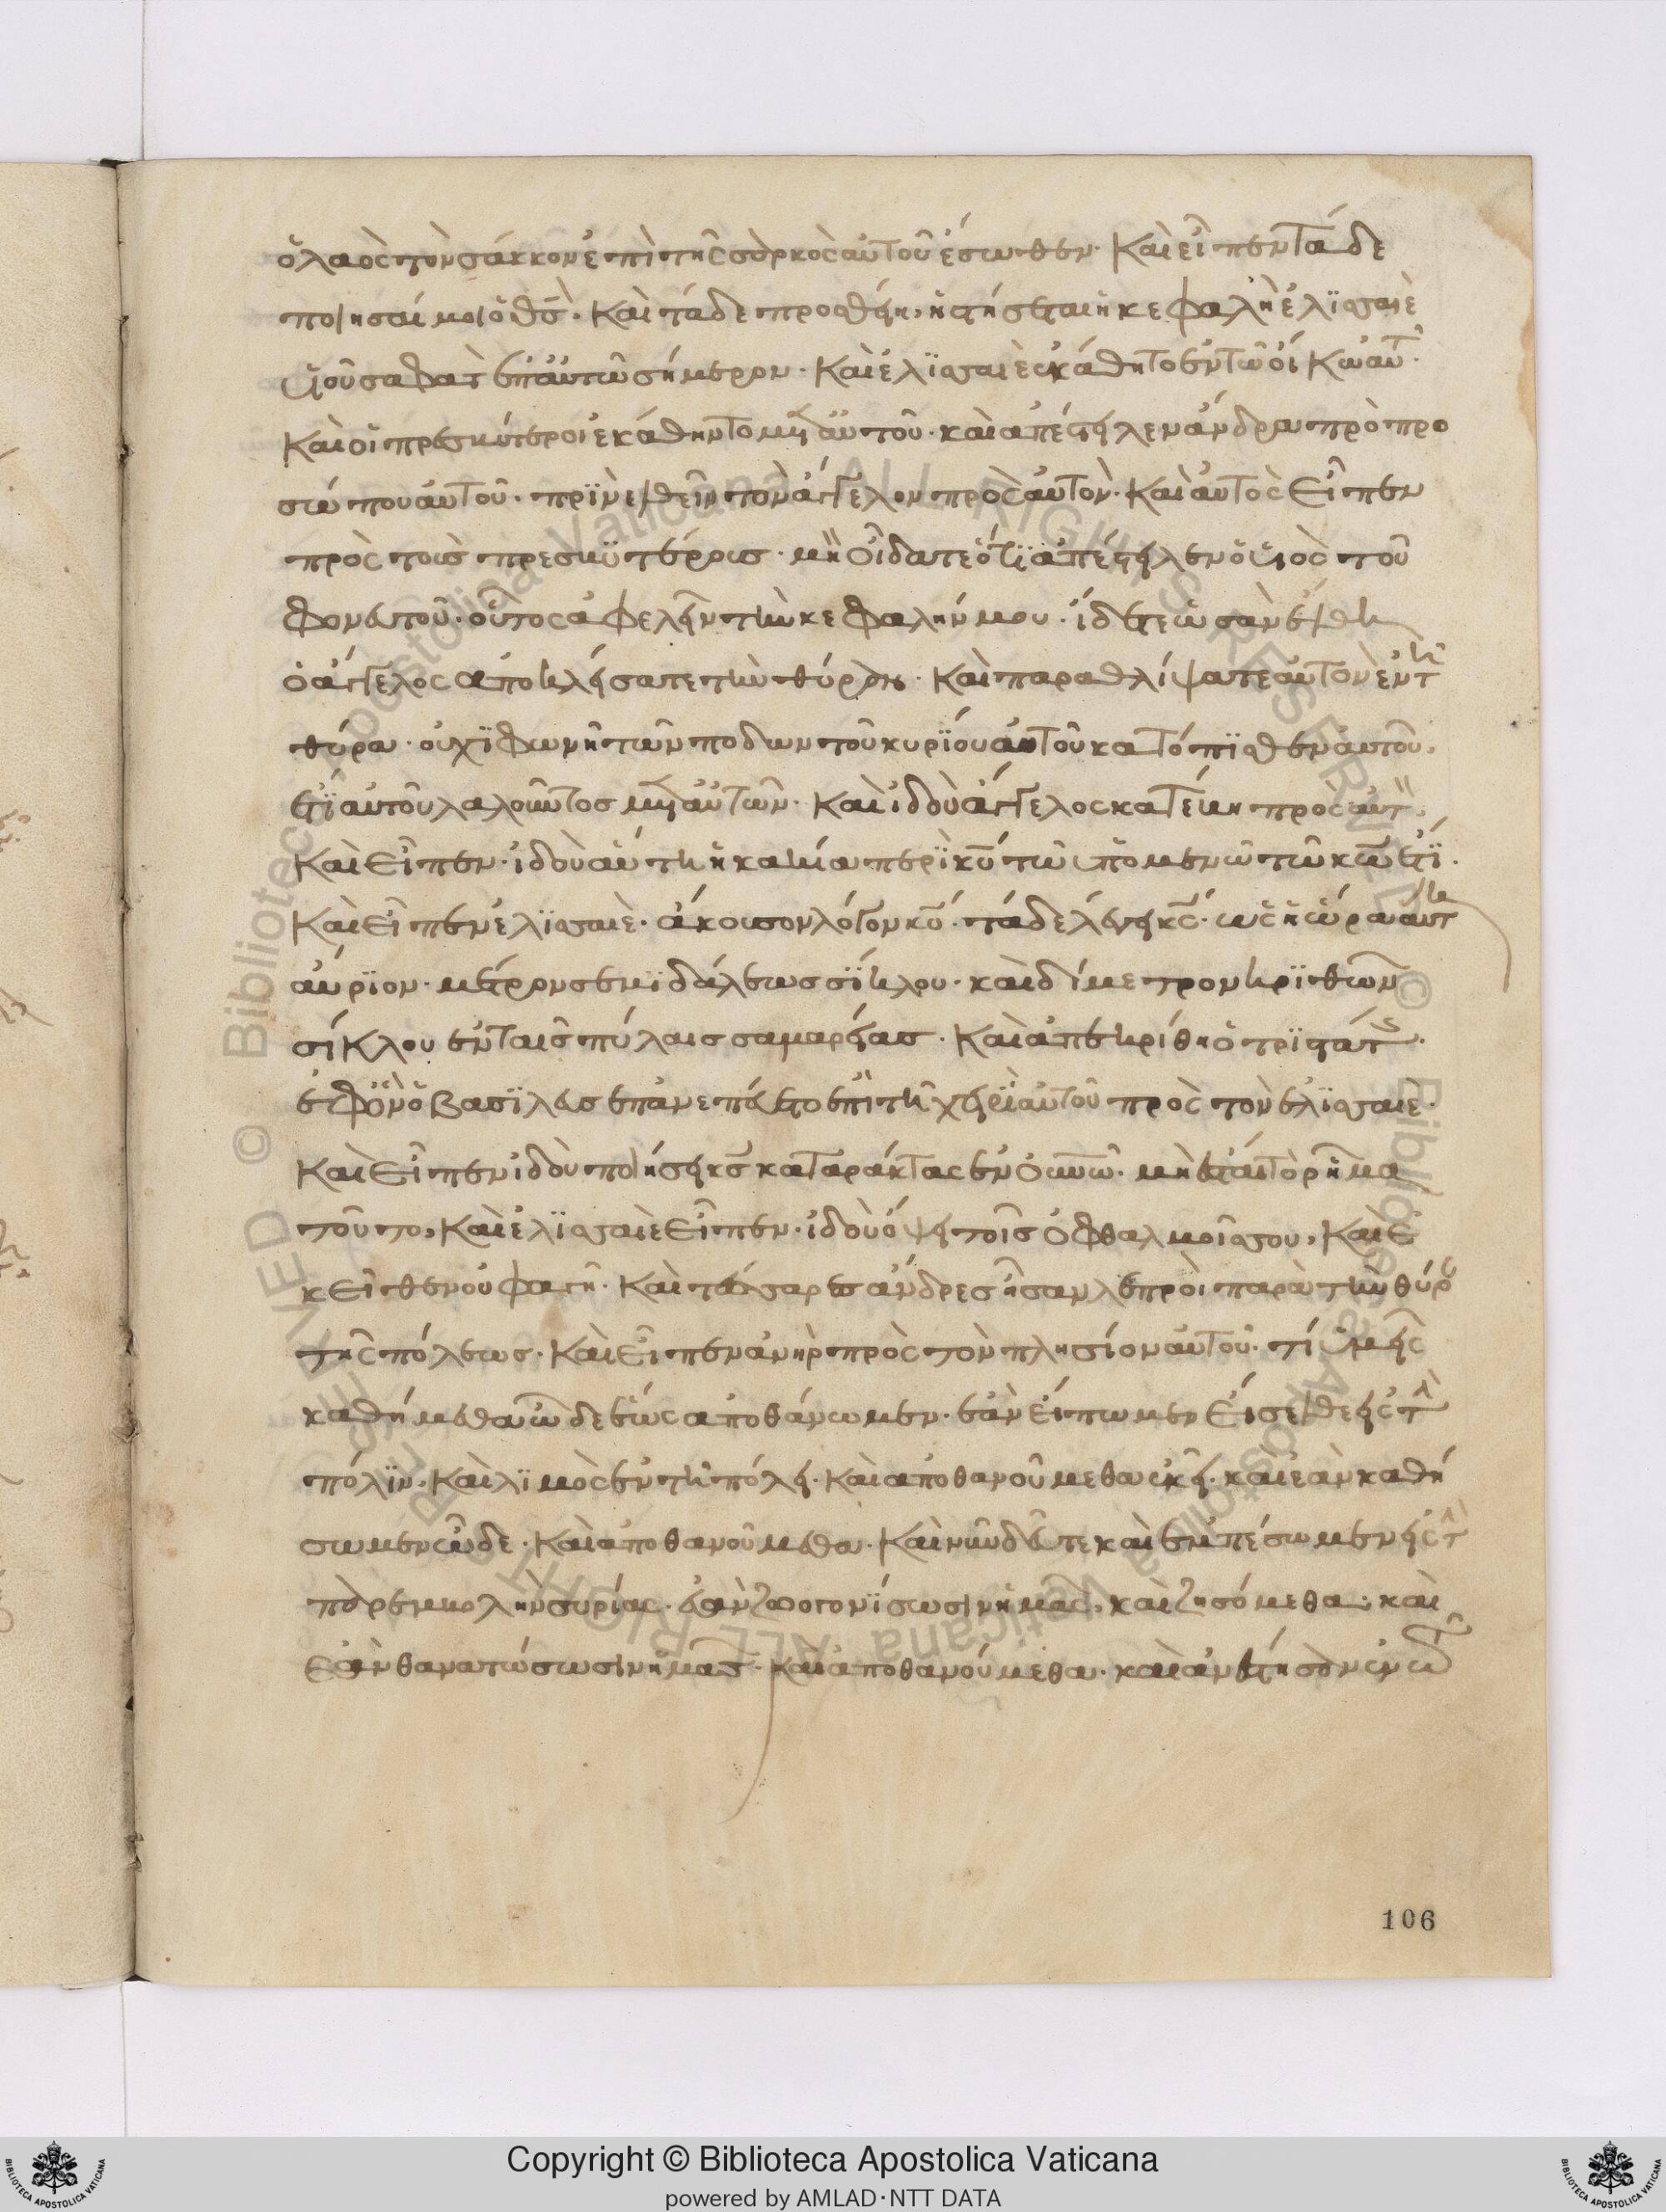 ὁ λαὸς τὸν σάκκον ἐπὶ τῆς σαρκὸς αὐτοῦ ἔσωθεν· Καὶ εἶπεν τάδε
ποιήσαι μοι ὁ θς̅· Καὶ τάδε προσθείη, εἰ στήσεται ἡ κεφαλὴ ἐλϊσσαιὲ
υἱοῦ σαφατ ἐπ' αὐτῶ σήμερον· Καὶ ἐλϊσσαιὲ ἐκάθητο ἐν τῶ οἴκω αυτ·
Καὶ οἱ πρεσβύτεροι ἐκάθηντο μετ αὐτοῦ· καὶ ἀπέστειλεν ἄνδρα πρὸ προ
σώπου αὐτοῦ· πρϊν ἐλθεῖν τὸν ἄγγελον πρὸς αὐτὸν· Καὶ αὐτὸς εἶπεν
πρὸς τοὺς πρεσβϋτέρους· μὴ οἴδατε ὅτϊ ἀπέστειλεν ὁ υἱὸς τοῦ
φονευτοῦ· οὗτος ἀφελεῖν τὴν κεφαλήν μου· ἴδετε ὡς ἀν ἔλθη
ὁ ἄγγελος ἀποκλείσατε τὴν θύραν· Καὶ παραθλίψατε αὐτὸν ἐν τῆ
θύρα· οὐχϊ φωνὴ τῶν ποδων τοῦ κυρϊόυ αὐτοῦ κατόπϊσθεν αὐτοῦ,
ἔτϊ αὐτοῦ λαλοῦντος μετ αὐτῶν· Καὶ ἰδοὺ ἄγγελος κατέβη πρὸς αὐτ·
Καὶ εἶπεν· ἰδοὺ αὕτη ἡ κακία περϊ κυ̅ τί ὑπομενῶ τῶ κω̅ ἔτϊ·
Καὶ εἶπεν ἐλϊσσαιὲ· ἄκουσον λόγον κυ̅· τάδε λέγει κς̅· ὡς ἡ ὥρα αὕτη
αὔρϊον· μέτρον σεμϊδάλεως σϊκλου· καὶ δίμετρον κρϊθῶν
σίκλου ἐν ταῖς πύλαις σαμαρείας· Καὶ ἀπεκρίθη ὁ τρϊστάτς·
ἐφ' ὃν ὁ βασϊλεὺς ἐπανεπαύετο ἐπὶ τῆ χειρϊ αὐτοῦ πρὸς τὸν ἐλϊσσαιὲ·
Καὶ εἶπεν ἰδοὺ ποιήσει κς̅ καταράκτας ἐν ουνω̅· μὴ ἔσται τὸ ρῆμα
τοῦτο, Καὶ ἐλϊσσαιὲ εἶπεν· ἰδοὺ ὄψει τοῖς ὀφθαλμοῖς σου, Καὶ ἐ
κεῖθεν οὐ φάγη· Καὶ τέσσαρες ἄνδρες ἦσαν λεπροὶ παρὰ τὴν θύρα
τῆς πόλεως· Καὶ εἶπεν ἀνὴρ πρὸς τὸν πλησίον αὐτοῦ· τί ὑμεῖς
καθήμεθα ὧδε ἕως ἀποθάνωμεν· ἐὰν εἴπωμεν εἰσέλθειν εἰς τὴν
πόλϊν, Καὶ λϊμὸς ἐν τῆ πόλει· καὶ ἀποθανοῦμεθα ἐκεῖ· καὶ ἐὰν καθή
σωμεν ὧδε· Καὶ ἀποθανοῦμεθα· Καὶ νῦν δεῦτε καὶ ἐμπέσωμεν εἰς τὴν
παρεμβολὴν συρίας· ἐὰν ζωογονϊσωσιν ἡμᾶς, καὶ ζησόμεθα· καὶ
ἐὰν θανατώσωσιν ἡμᾶς· Καὶ ἀποθανούμεθα· καὶ ἀνέστησαν ἐν τῶ
106
Copyright © Biblioteca Apostolica Vaticana
powered by AMLAD·NTT DATA